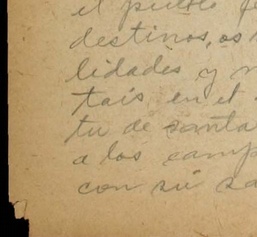 el pueblo
destinos, os
lidades y
tais en el
tu de santa
a los camp
con su sa